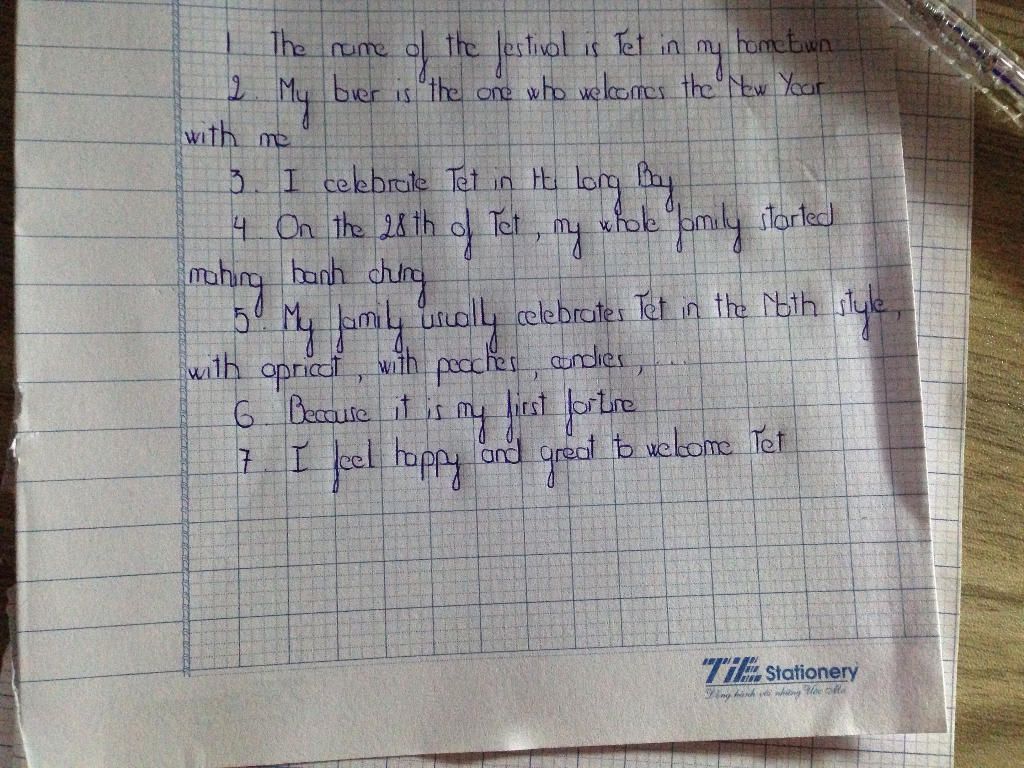 1 The name of the festival is Tet in my hometown
2. My lover is the one who welcomes the New Year
with me
3. I celebrate Tet in Ha Long Bay
4 On the 28th of Tet, my whole family started
making banh chung
5. My family usually celebrates Tet in the Noth style,
with apricot, with peaches, candies, ....
6. Because it is my first fortune
7. I feel happy and great to welcome Tet
TiE Stationery
Đồng hành với những Ước Mơ